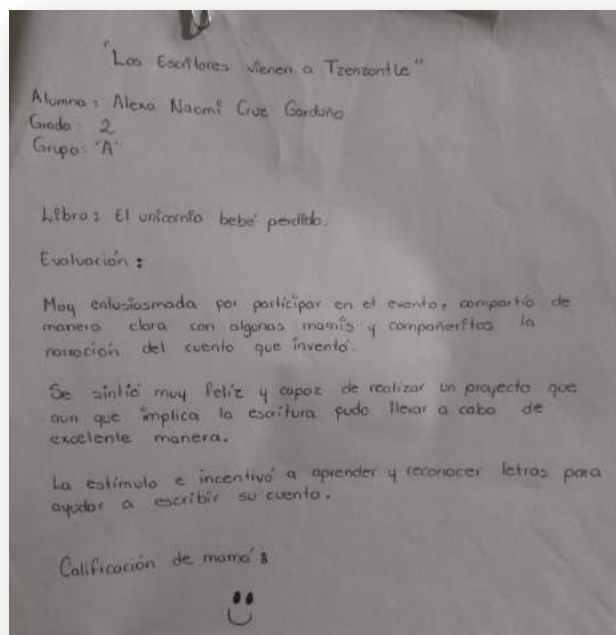 "Los Escritores vienen a Tzenzontle"
Alumna: Alexa Naomi Cruz Garduño
Grado: 2
Grupo: "A"
Libro: El unicornio bebé perdido.
Evaluación:
Muy entusiasmada por participar en el evento, compartió de
manera clara con algunas mamis y compañeritos la
narración del cuento que inventó.
Se sintió muy feliz y capaz de realizar un proyecto que
aun que implica la escritura pudo llevar a cabo de
excelente manera.
La estímulo e incentivó a aprender y reconocer letras para
ayudar a escribir su cuento.
Calificación de mamá: